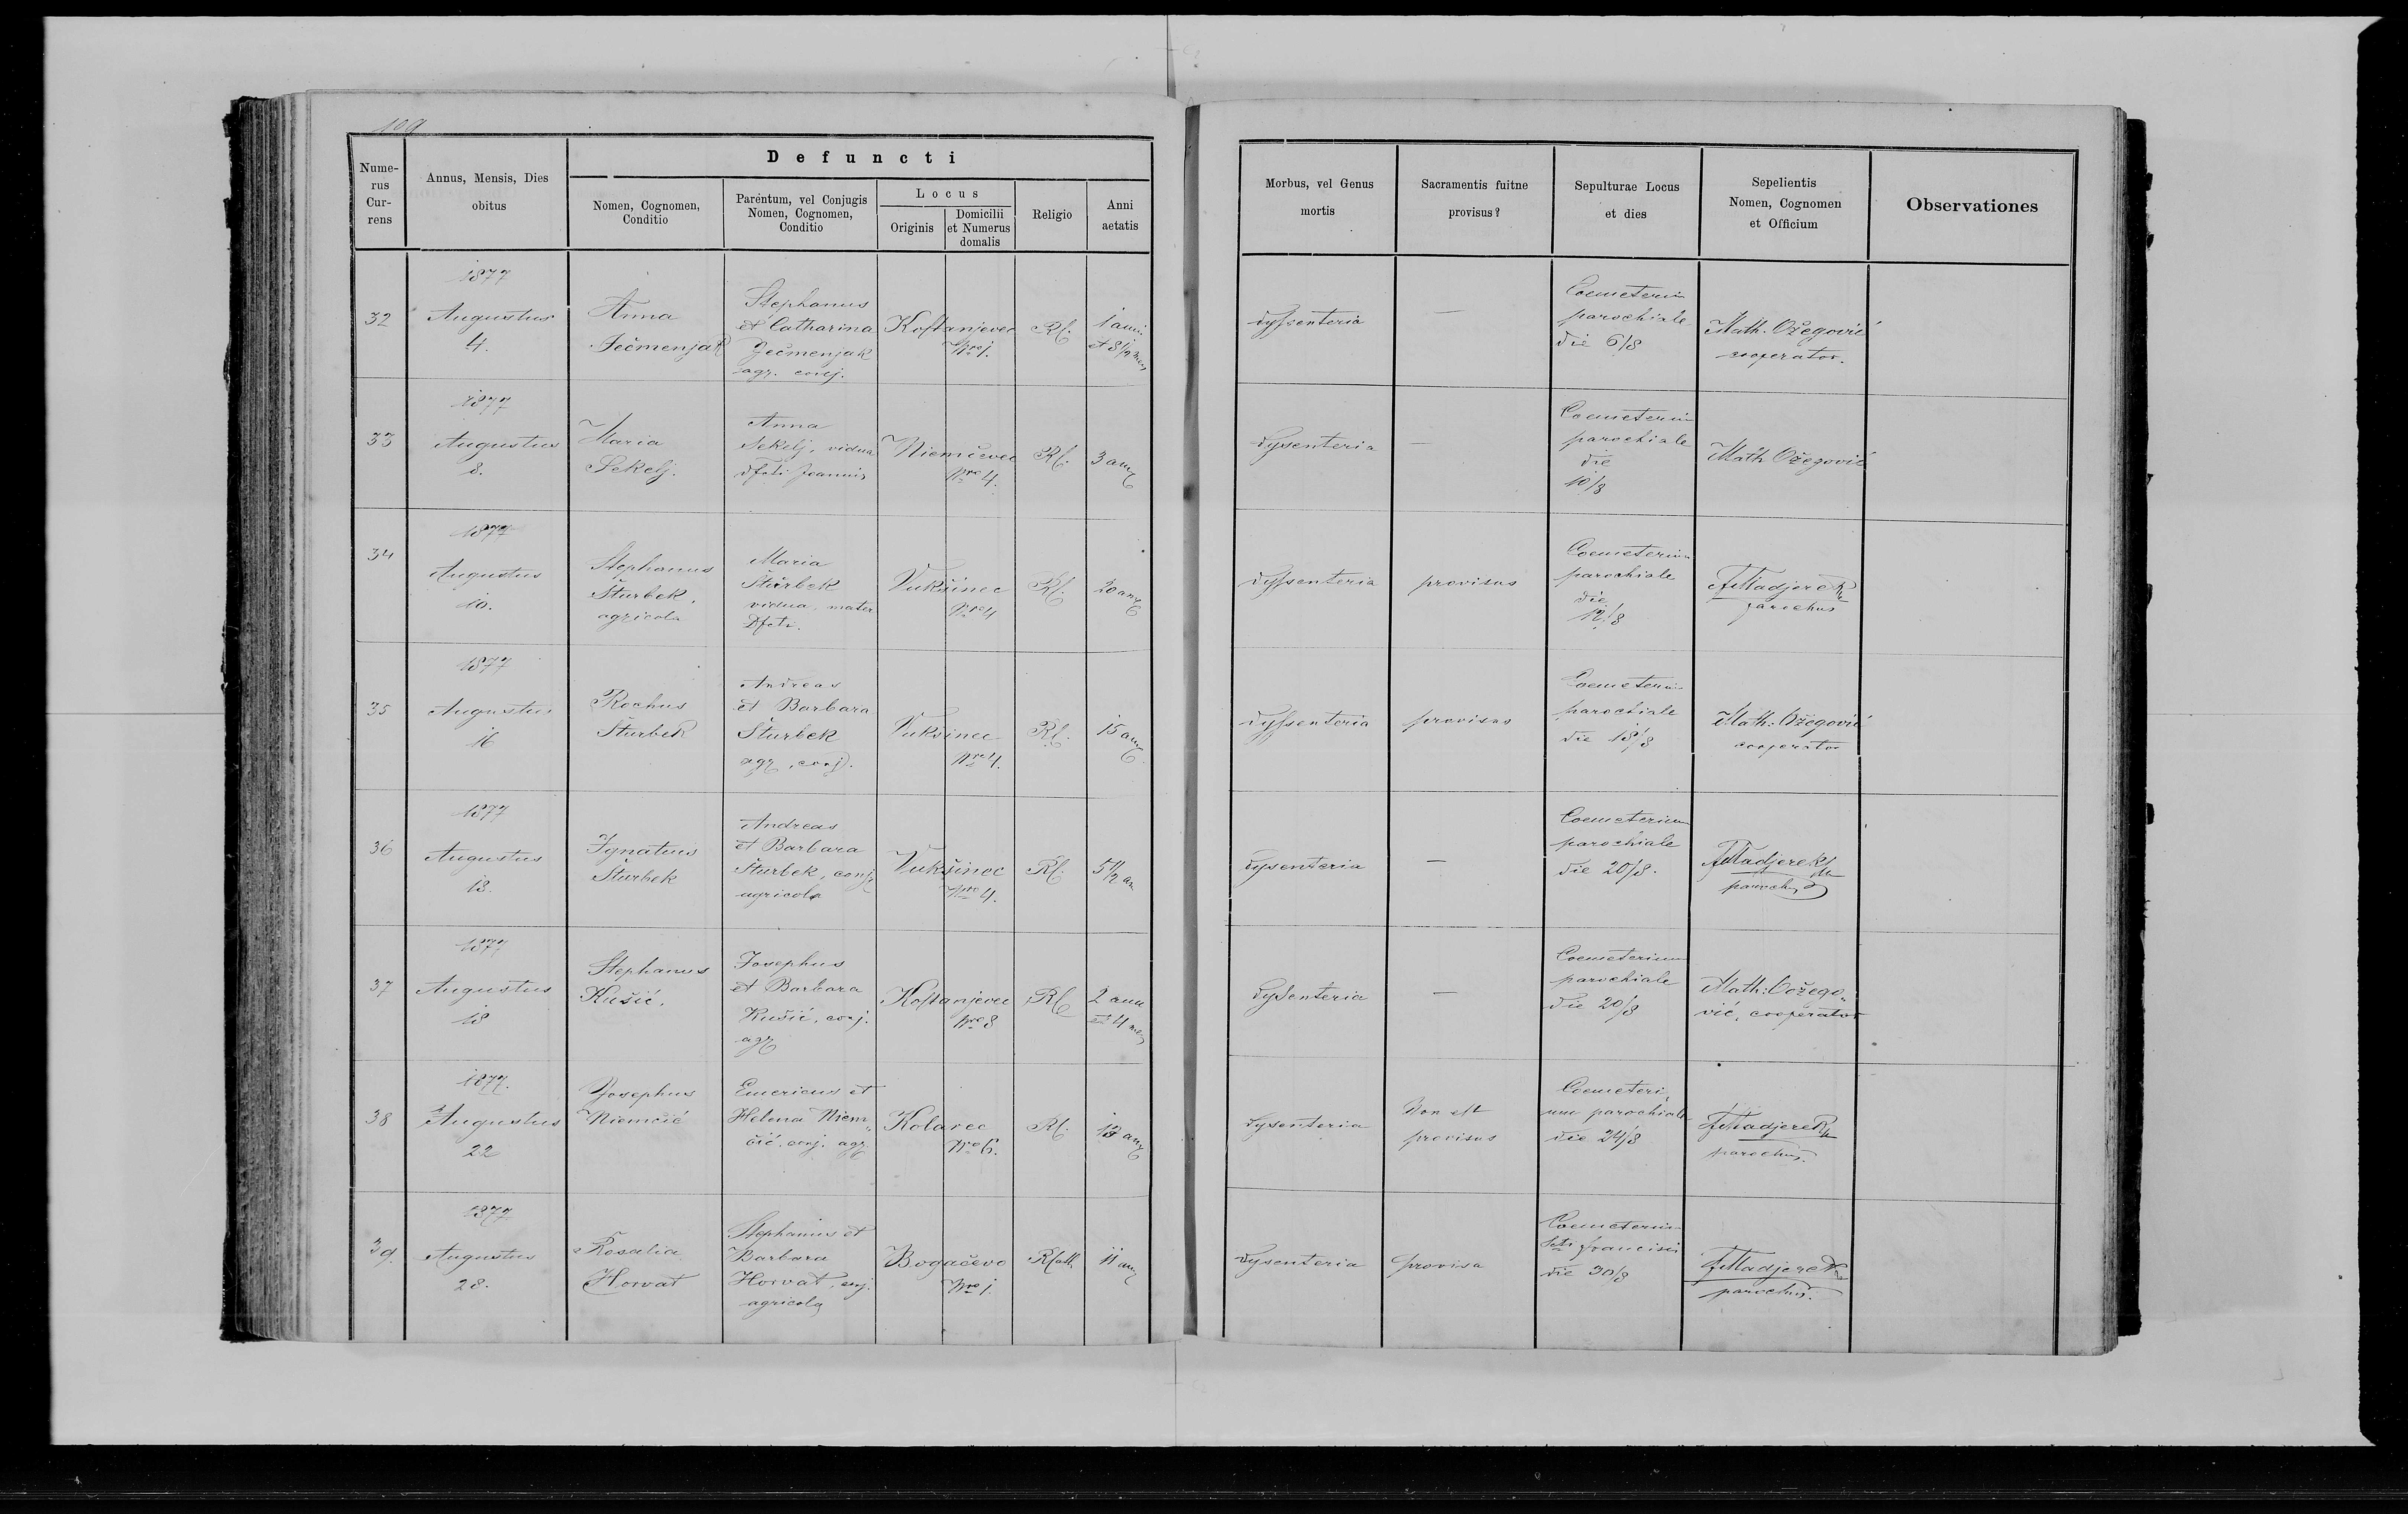 109
Defuncti
Nume-
rus
Cur-
rens
Annus, Mensis, Dies
obitus
Nomen, Cognomen,
Conditio
Parentum, vel Conjugis
Nomen, Cognomen,
Conditio
Locus
Originis
Domicilii
et Numerus
domalis
Religio
Anni
aetatis
Morbus, vel Genus
mortis
Sacramentis fuitne
provisus?
Sepulturae Locus
et dies
Sepelientis
Nomen, Cognomen
et Officium
Observationes
32
1877
Augustus
4.
Anna
Ječmenjak
Stephanus
et Catharina
Ječmenjak
agr. conj.
Kostanjevec
Nro 1.
RC.
1 anni
et 8 1/2 mens
dyssenteria
—
Coemeterium
parochiale
die 6/8
Math. Ožegović
cooperator.
33
1877
Augustus
8.
Maria
Sekelj.
Anna
Sekelj, vidua
dfcti Joannis
Niemčevec
Nro 4.
RC.
3 ann
Dysenteria
—
Coemeterium
parochiale
die
10/8
Math Ožegović
34
1877
Augustus
10.
Stephanus
Šturbek,
agricola
Maria
Šturbek
vidua, mater
Dfcti.
Vukšinec
Nro 4
RC.
20 ann
Dyssenteria
provisus
Coemeterium
parochiale
die
12/8
FMadjerek
parochus
35
1877
Augustus
16
Rochus
Šturbek
Andreas
et Barbara
Šturbek
agr, conj.
Vuksinec
Nro 4.
RC.
15 ann
Dyssenteria
provisus
Coemeterium
parochiale
die 18/8
Math: Ožegović
cooperator
36
1877
Augustus
18.
Ignatius
Šturbek
Andreas
et Barbara
Šturbek, conj
agricola
Vukšinec
Nro 4.
RC.
5 1/2 an
Dysenteria
—
Coemeterium
parochiale
die 20/8.
FMadjerek
paroch
37
1877
Augustus
18
Stephanus
Kušić.
Josephus
et Barbara
Kušić, conj.
agr
Kostanjevec
Nro 8
RC
2 ann
et 4 mens
Dysenteria
—
Coemeterium
parochiale
die 20/8
Math: Ožego„
vić, cooperator
38
1877.
Augustus
22
Josephus
Niemčić
Emericus et
Helena Niem„
čić, conj. agr
Kolarec
Nro 6.
RC.
13 ann
Dysenteria
Non est
provisus
Coemeteri„
um parochiale
die 24/8
FMadjerek
parochus.
39.
1877
Augustus
28.
Rosalia
Horvat
Stephanus et
Barbara
Horvat, conj.
agricola
Bogačevo
Nro 1.
RCath
11 ann
Dysenteria
provisa
Coemeterium
Scti Francisci
die 30/8
FMadjerek
parochus.